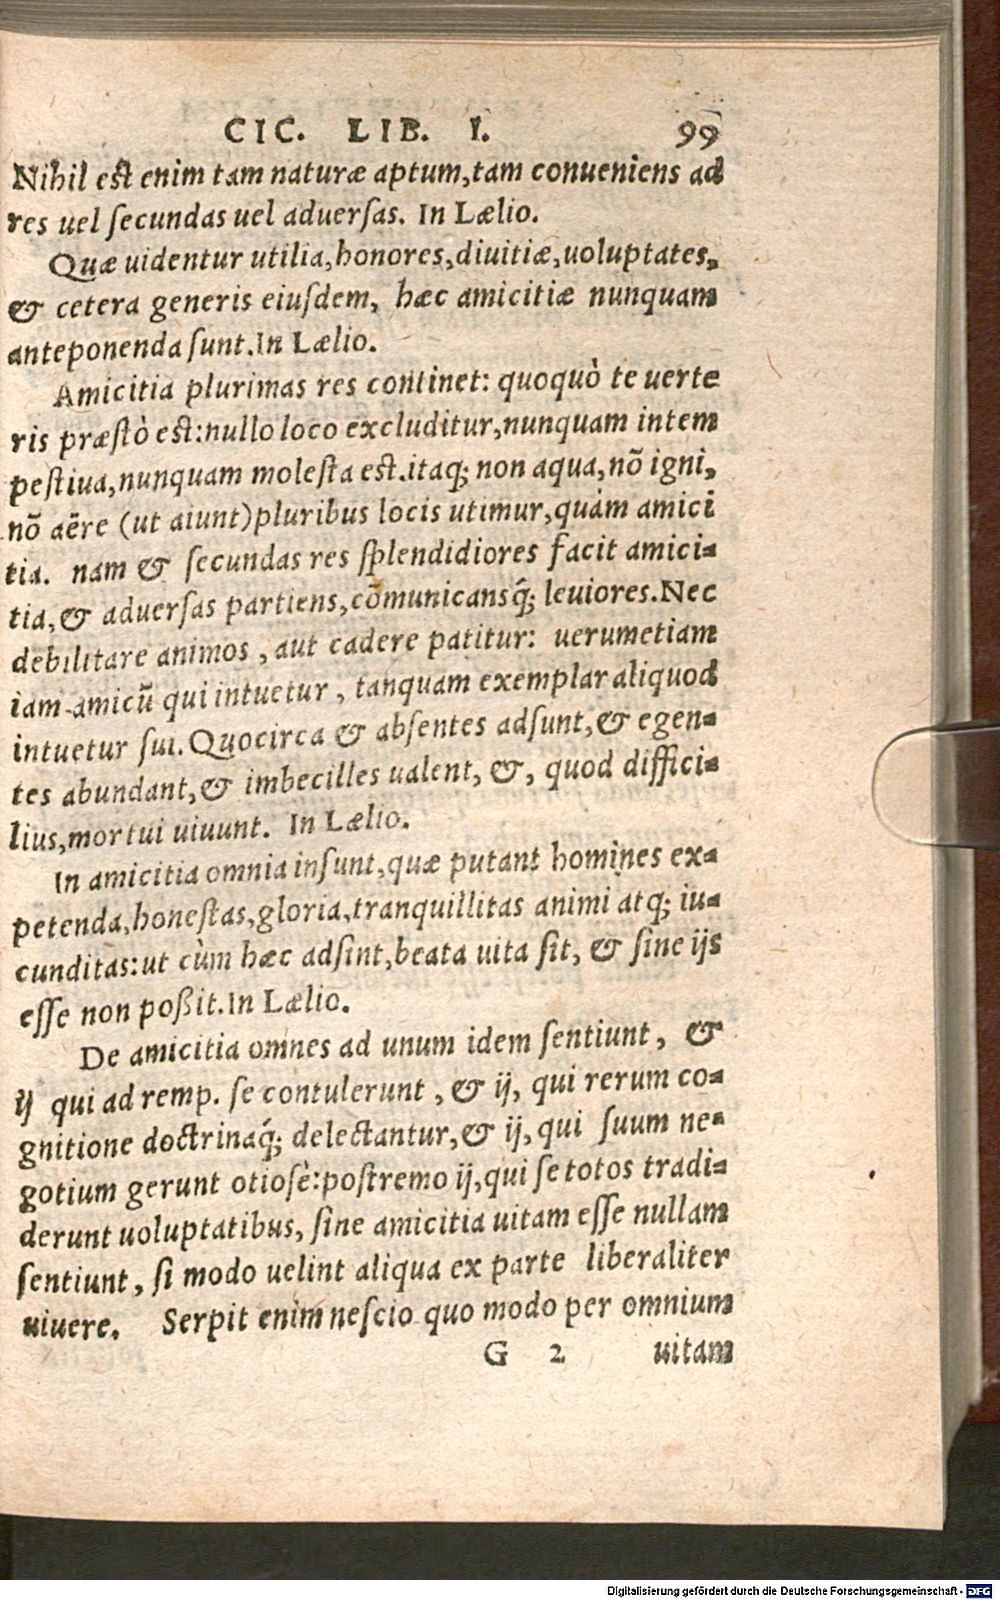 CIC. LIB. I. 99
Nihil est enim tam naturæ aptum,tam conueniens ad
res uel ſecundas uel aduerſas. In Lælio.
Quæ uidentur utilia,honores,diuitiæ,uoluptates,
& cetera generis eiuſdem, hæc amicitiæ nunquam
anteponenda ſunt.In Lælio.
Amicitia plurimas res continet: quoquò te uerte
ris præſtò est:nullo loco excluditur,nunquam intem
peſtiua,nunquam moleſta est.itaq; non aqua,nõ igni,
nõ aëre (ut aiunt)pluribus locis utimur,quàm amici
tia. nam & ſecundas res ſplendidiores facit amici-
tia,& aduerſas partiens,cõmunicansq́; leuiores.Nec
debilitare animos , aut cadere patitur: uerumetiam
iam amicũ qui intuetur , tanquam exemplar aliquod
intuetur ſui. Quocirca & abſentes adſunt,& egen-
tes abundant,& imbecilles ualent, &, quod diffici-
lius,mortui uiuunt. In Lælio.
In amicitia omnia inſunt,quæ putant homines ex-
petenda,honeſtas,gloria,tranquillitas animi atq; iu-
cunditas:ut cùm hæc adſint,beata uita ſit, & ſine ijs
eſſe non poßit.In Lælio.
De amicitia omnes ad unum idem ſentiunt , &
ij qui ad remp. ſe contulerunt , & ij, qui rerum co-
gnitione doctrinaq́; delectantur,& ij, qui ſuum ne-
gotium gerunt otioſè:poſtremo ij,qui ſe totos tradi-
derunt uoluptatibus, ſine amicitia uitam eſſe nullam
ſentiunt, ſi modo uelint aliqua ex parte liberaliter
uiuere. Serpit enim neſcio quo modo per omnium
G 2 uitam
Digitalisierung gefördert durch die Deutsche Forschungsgemeinschaft - DFG